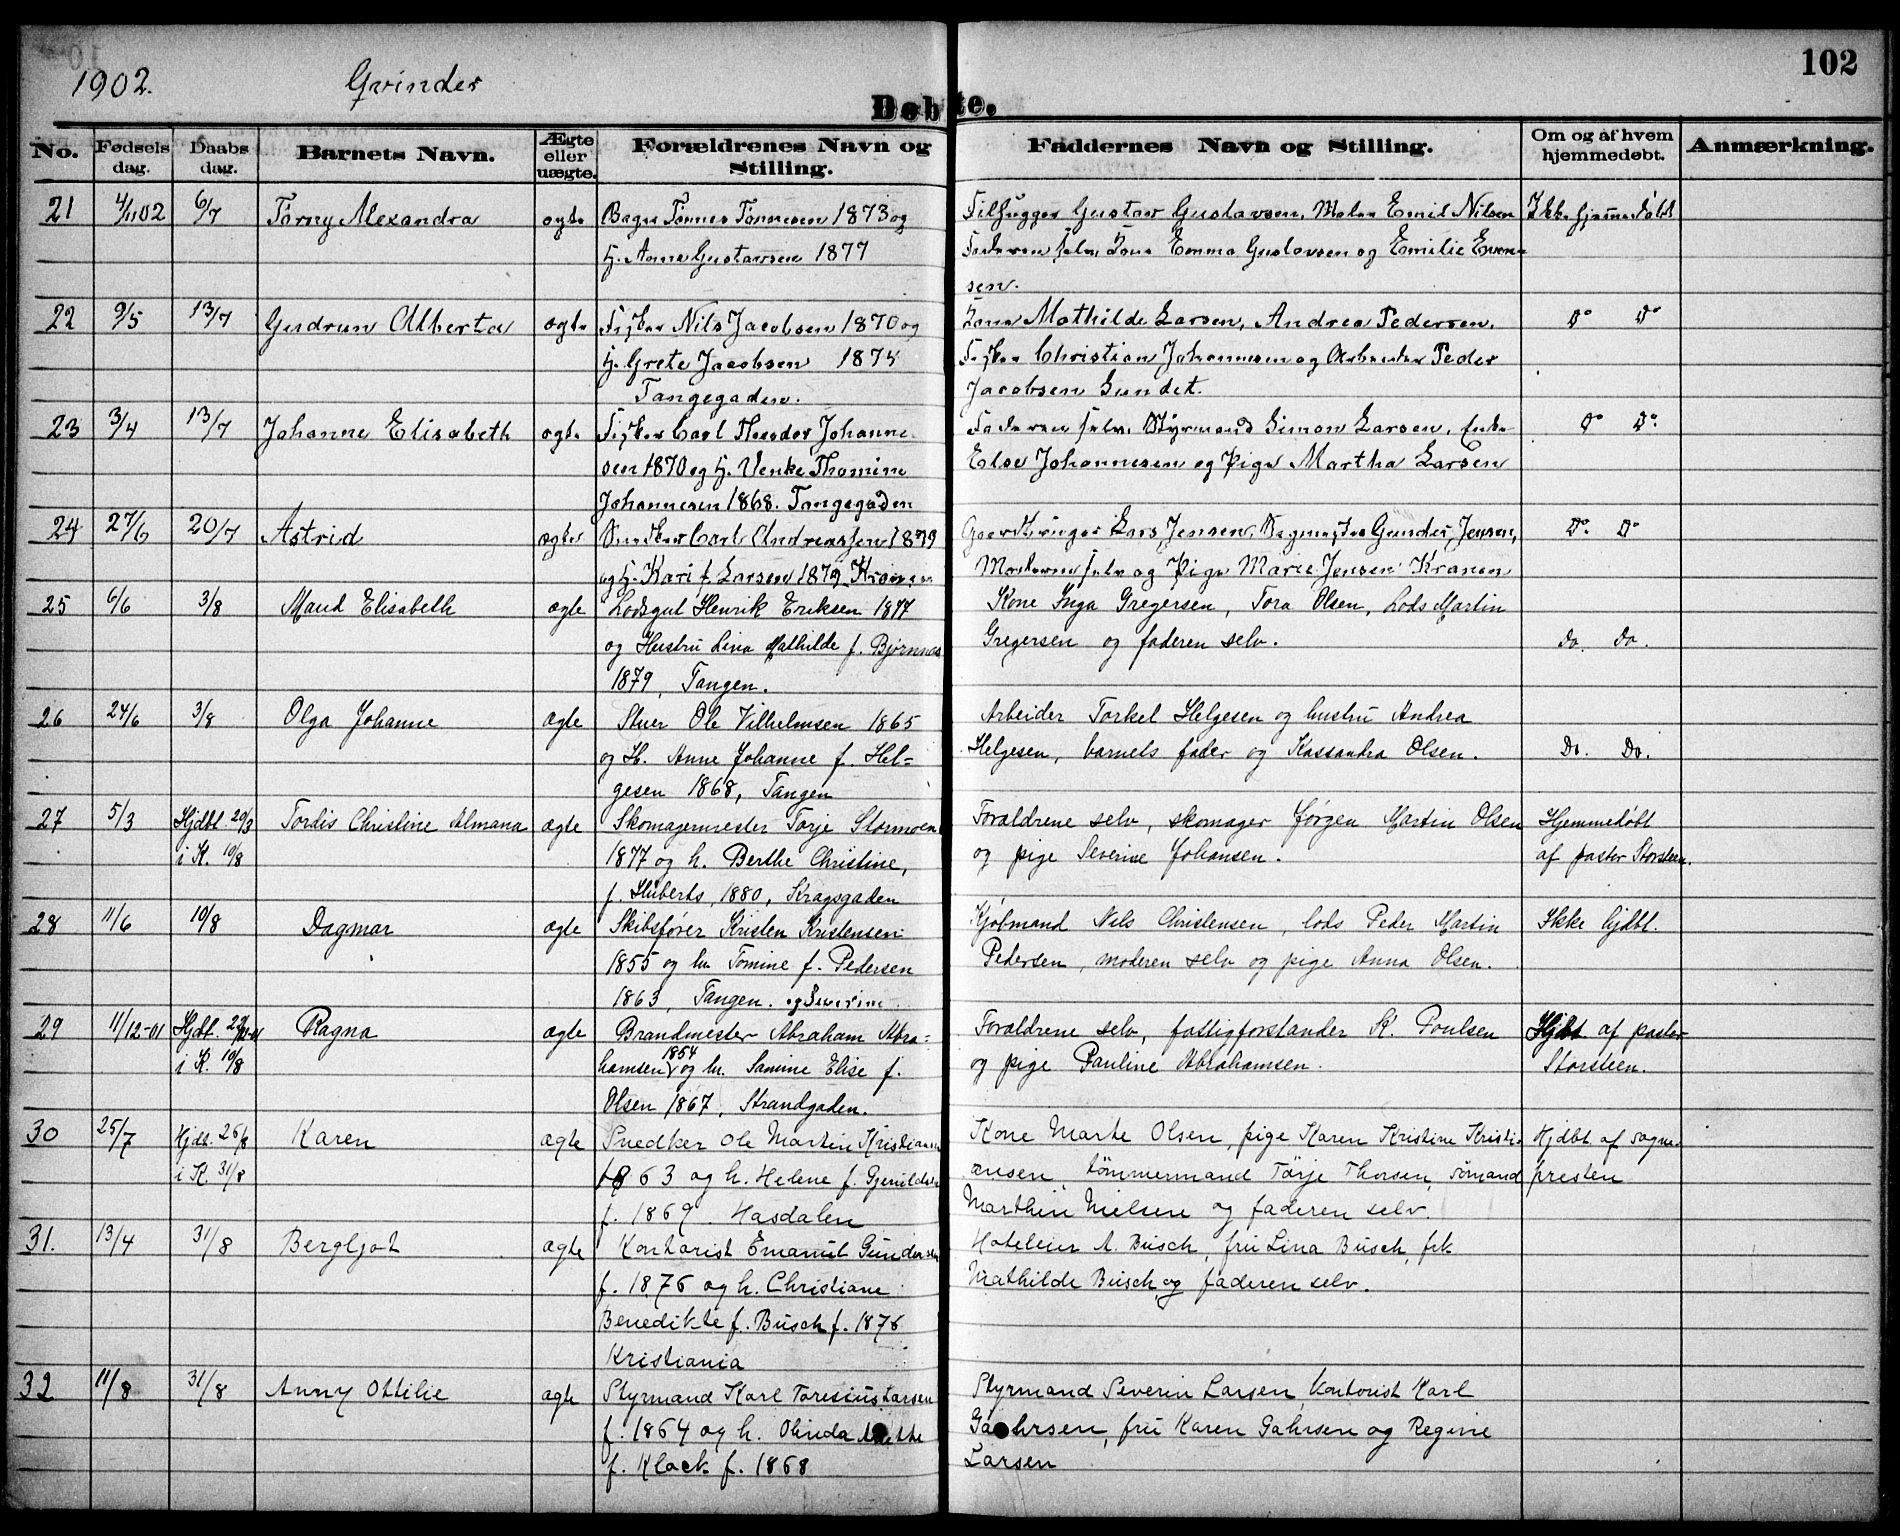 1902.
Qvinder
102
Døbte.
No.
Fødsels dag.
Daabs dag.
Barnets Navn.
Ægte eller uægte.
Forældrenes Navn og Stilling.
Faddernes Navn og Stilling.
Om og af hvem hjemmedøbt.
Anmærkning.
21 4/1102 6/7 Tørny Alexandra ægte Bager Tønnes Tønnesen 1873 og Gustav Gustavsen, Maler Emil Nilsen Ikke hjemmedøbt
H. Anna Gustavsen 1877 Faderen selv, Kone Emma Gustavsen og Emilie Even-
sen.
22 9/5 13/7 Gudrun Alberta ægte Fisker Nils Jacobsen 1870 og Kone Mathilde Larsen, Andrea Pedersen, Do Do
H. Grete Jacobsen 1875 Fisker Christian Johannesen og Arbeider Peder
Tangegaden. Jacobsen Sundet.
23 3/4 13/7 Johanne Elisabeth ægte Fisker Carl Theodor Johanne- Faderen selv, Styrmand Simon Larsen, Enke Do Do
sen 1870 og H. Venke Thomine Else Johannesen og Pige Martha Larsen
Johannesen 1868. Tangegaden
24 27/6 20/7 Astrid ægte Snedker Carl Andreassen 1879 Lars Jensen, Gunder Jensen, Do Do
og H. Kari f. Larsen 1879. Kranen Moderen selv og Pige Marie Jensen Kranen
25 6/6 3/8 Maud Elisabeth ægte Lodsgut Henrik Eriksen 1877 Kone Inga Gregersen, Tora Olsen, Lods Martin
og Hustru Lina Mathilde f. Bjørnnes Gregersen og faderen selv. Do. Do.
1879, Tangen.
26 24/6 3/8 Olga Johanne ægte Stuer Ole Vilhelmsen 1865 Arbeider Torkel Helgesen og hustru Andrea
og H. Anne Johanne f. Hel- Helgesen, barnets fader og Kassandra Olsen. Do. Do.
gesen 1868, Tangen
27 5/3 Hjdbt 20/3 Tordis Christine Elmana ægte Skomagermester Torje Stormoen Forældrene selv, skomager Jørgen Martin Olsen Hjemmedøbt
i K. 10/8 1877 og h. Berthe Christine, og pige Severine Johansen. af pastor Storsteen.
f. Huberts, 1880, Kragsgaden
28 11/6 10/8 Dagmar ægte Skibsfører Kristen Kristensen Kjøbmand Nils Christensen, lods Peder Martin Ikke hjdbt.
1855 og hu Tomine f. Pedersen Pedersen, moderen selv og pige Anna Olsen.
1863, Tangen. og Severine
29 11/12-01 Hjdbt. 29/12-01 Ragna ægte Brandmester Abraham Abra- Forældrene selv, fattigforstander K. Poulsen Hjdbt af pastor
i K. 10/8 hamsen 1854 og hu. Samine Elise f. og pige Pauline Abrahamsen. Storsteen.
Olsen 1867, Strandgaden.
30 25/7 Hjdbt. 25/8 Karen ægte Snedker Ole Martin Kristiansen Kone Marte Olsen, pige Karen Kristine Kristi- Hjdbt af sogne-
i K. 31/8 1863 og h. Helene f. ansen, tømmermand Tørje Thorsen, sømand presten
f. 1869. Hasdalen Marthin Nielsen og faderen selv.
31. 13/4 31/8 Bergljot ægte Kontorist Emanuel Gundersen Hoteleier A. Busch, fru Lina Busch, frk
f. 1876 og h. Christiane Mathilde Busch og faderen selv.
Benedikte f. Busch f. 1876
Kristiania
32 11/8 31/8 Anny Ottilie ægte Styrmand Karl Toresius Larsen Styrmand Severin Larsen, Kontorist Karl
f. 1864 og h. Olinda Anette Gahrsen, fru Karen Gahrsen og Regine
f. Klock f. 1868 Larsen